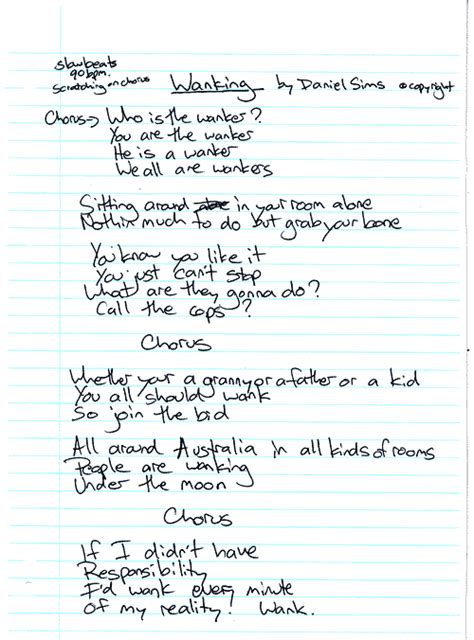 slow beats
90 bpm.
scratching on chorus
Wanking by Daniel Sims © copyright
Chorus→ Who is the wanker?
You are the wanker
He is a wanker
We all are wankers
Sitting around in your room alone
Nothin much to do but grab your bone
You know you like it
You just can't stop
What are they gonna do?
Call the cops?
Chorus
Whether your a granny or a father or a kid
You all should wank
So join the bid
All around Australia in all kinds of rooms
People are wanking
Under the moon
Chorus
If I didn't have
Responsibility
I'd wank every minute
Of my reality! Wank.